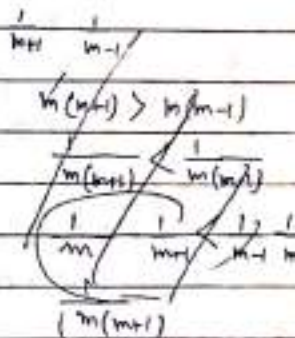 1/(m+1) 1/(m-1)
m(m+1) > m(m-1)
1/(m(m+1)) < 1/(m(m-1))
1/m 1/(m+1) < 1/(m-1) 1/m
m(m+1)